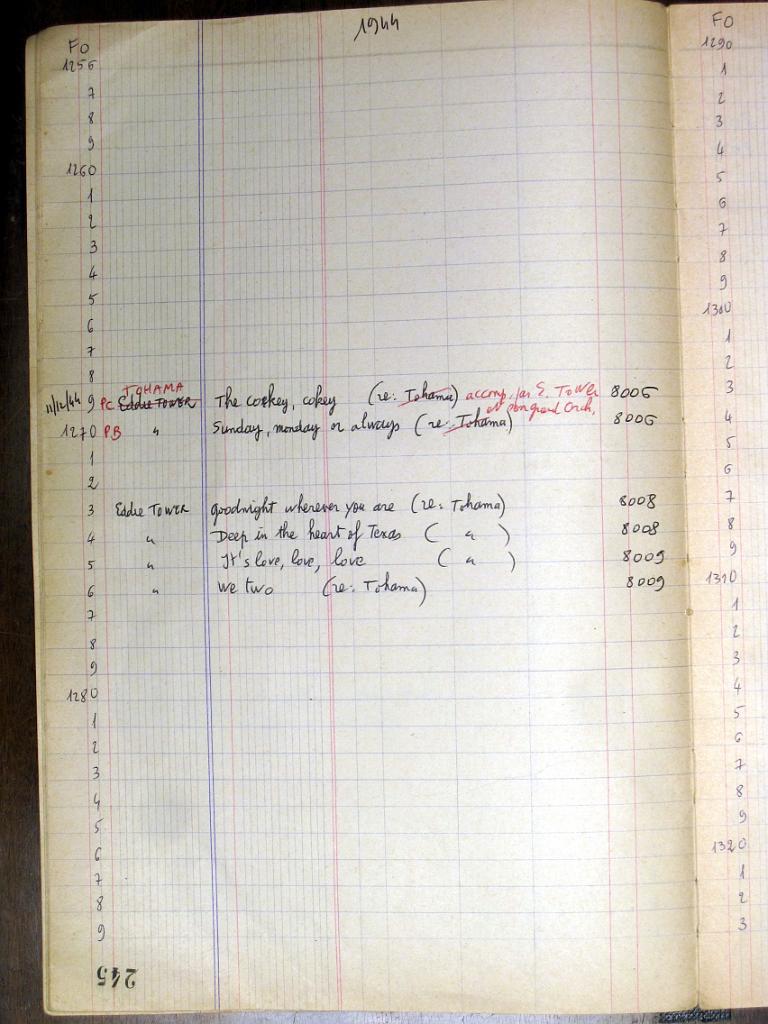 1944
FO
1256
7
8
9
1260
1
2
3
4
5
6
7
8
TOHAMA
11/12/44 9 PC Eddie TOWER The cokey, cokey (re: Tohama) accomp. par E. Tower 8006
et son grand Orch.
1270 PB " Sunday, monday or always (re: Tohama) 8006
1
2
3 Eddie TOWER goodnight wherever you are (re: Tohama) 8008
4 " Deep in the heart of Texas ( " ) 8008
5 " It's love, love, love ( " ) 8009
6 " We two (re: Tohama) 8009
7
8
9
1280
1
2
3
4
5
6
7
8
9
245
FO
1290
1
2
3
4
5
6
7
8
9
1300
1
2
3
4
5
6
7
8
9
1310
1
2
3
4
5
6
7
8
9
1320
1
2
3